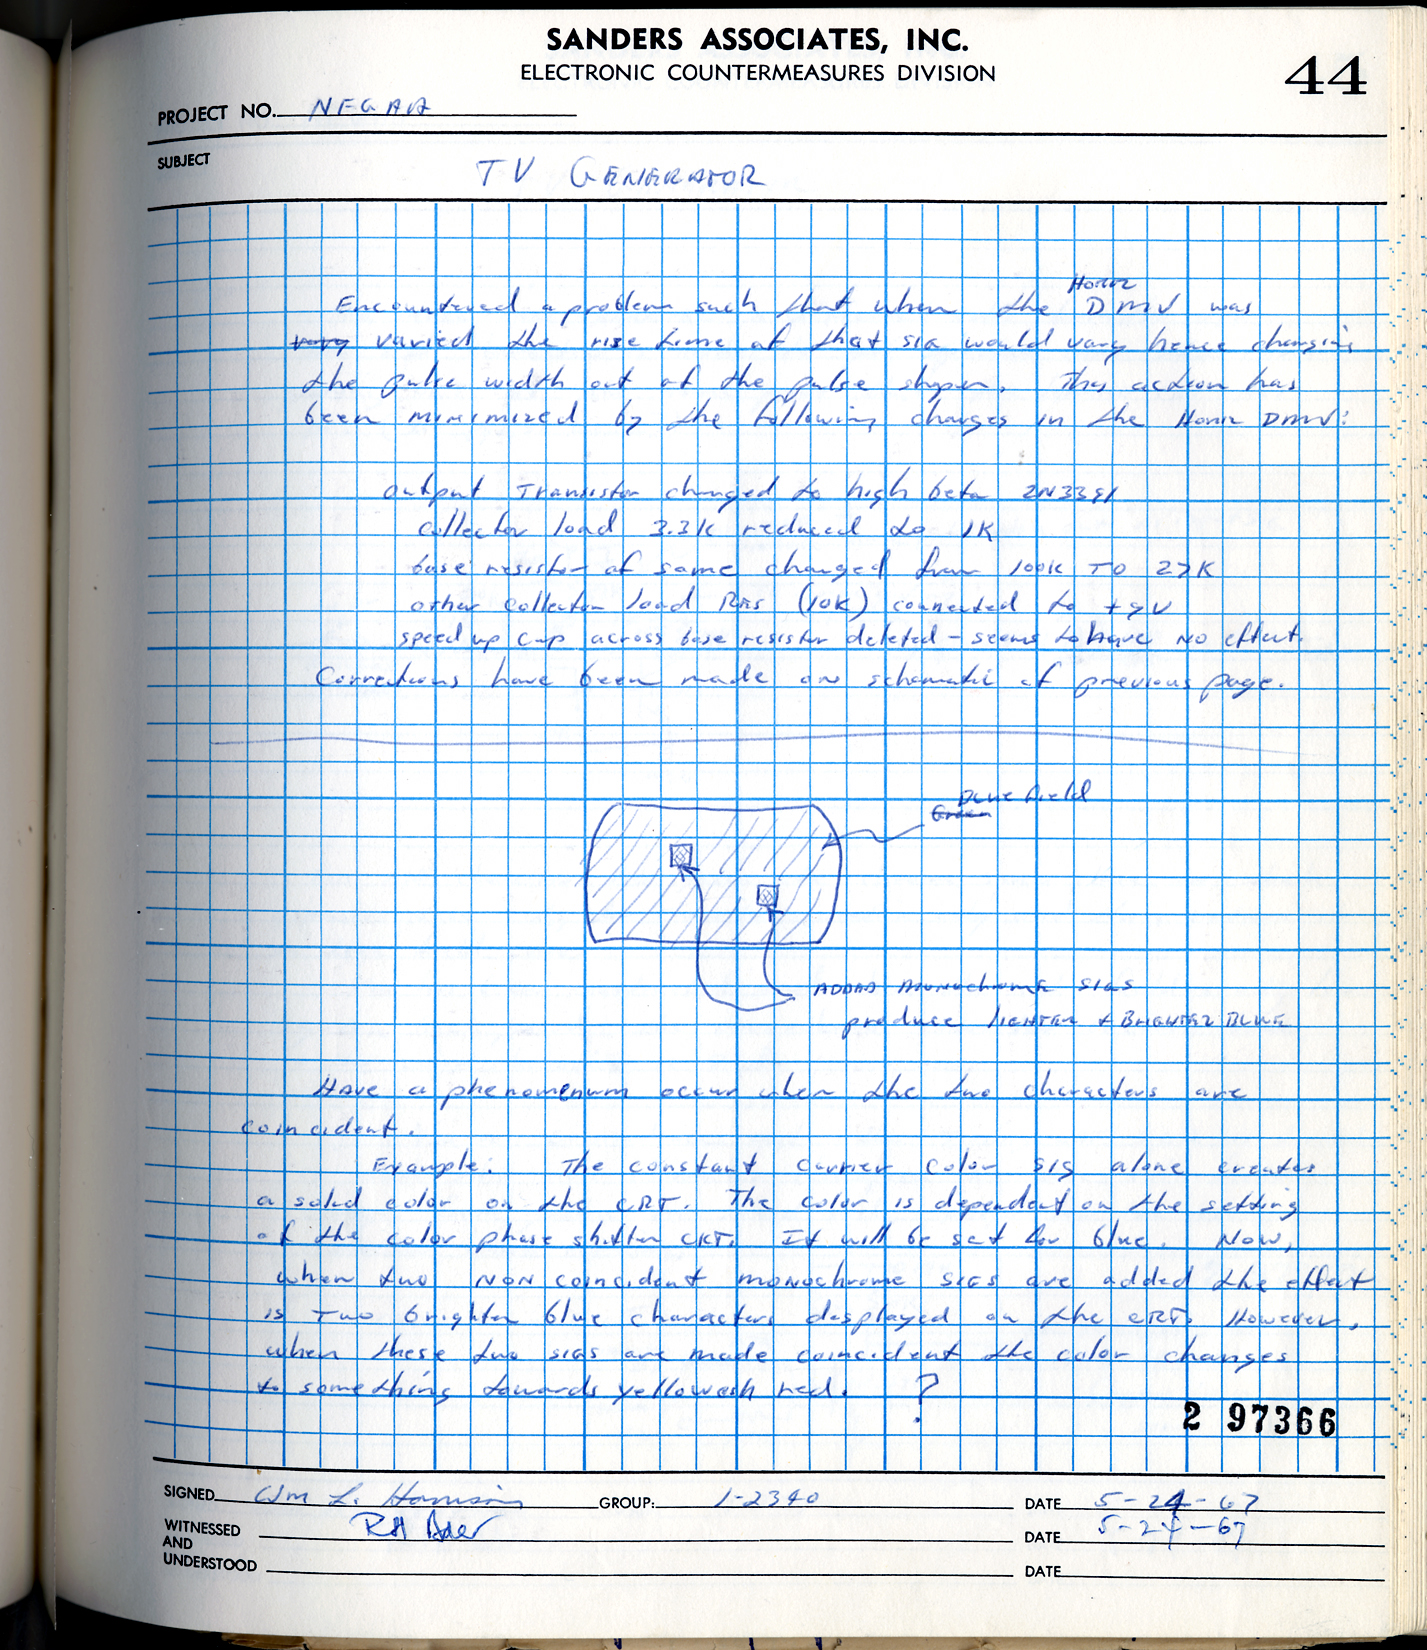 SANDERS ASSOCIATES, INC.
ELECTRONIC COUNTERMEASURES DIVISION
44
PROJECT NO.
SUBJECT TV GENERATOR
Horiz
Encountered a problem such that when the DMV was
vary varied the rise time of that sig would vary hence changing
the pulse width out of the pulse shaper. This action has
been minimized by the following changes in the Horiz DMV:
output Transistor changed to high beta 2N3391
collector load 3.3K reduced to 1K
base resistor of same changed from 100K TO 27K
other collector load Res (10K) connected to +9V
speed up cap across base resistor deleted - seems to have NO effect.
Corrections have been made on schematic of previous page.
Blue field
Green
ADDED MONOchrome SIGS
produce lIGHTER + BRIGHTER BLUE
Have a phenomenum occur when the two characters are
coincident.
Example: The constant carrier color sig alone creates
a solid color on the CRT. The color is dependent on the setting
of the color phase shifter CKT. It will be set for blue. Now,
when two NON coincident monochrome SIGS are added the effect
is Two brighter blue characters displayed on the CRT. However,
when these two sigs are made coincident the color changes
to something towards yellowish red. ?
2 97366
SIGNED Wm L. Harrison GROUP: 1-2340 DATE 5-24-67
WITNESSED RH Baer DATE 5-24-67
AND
UNDERSTOOD DATE